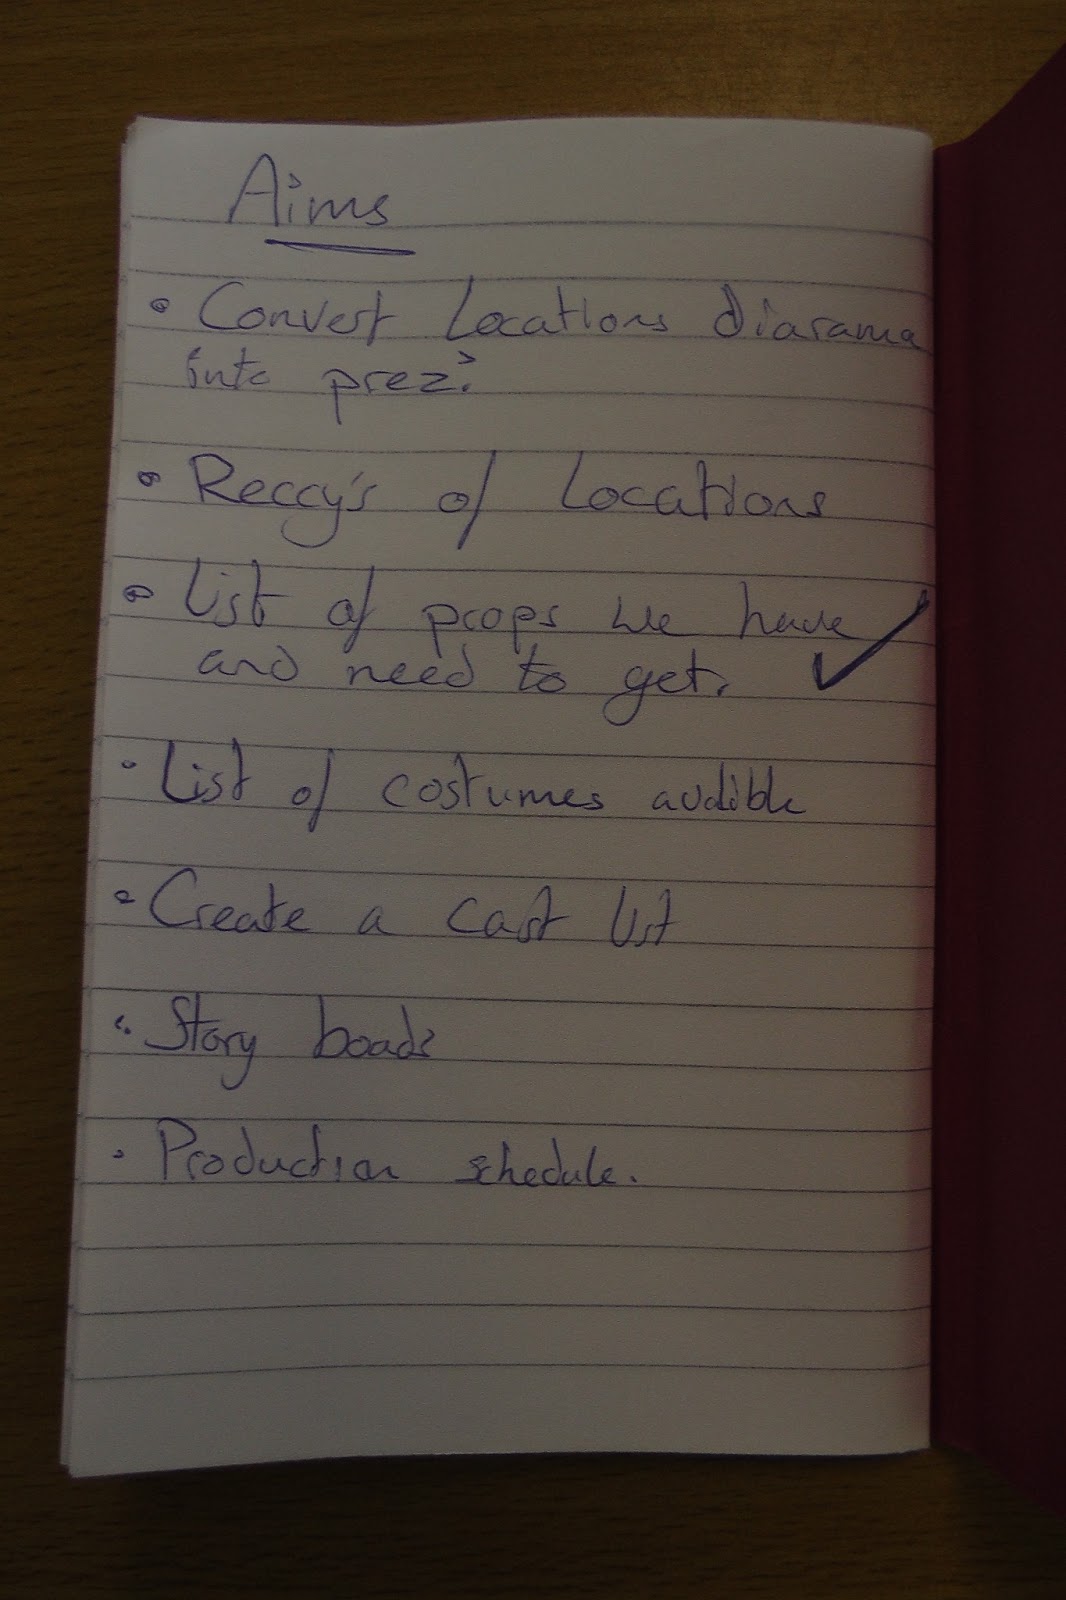 Aims
• Convert locations diarama
into prezi
• Reccy's of locations
• List of props we have ✓
and need to get.
• List of costumes avalible
• Create a cast list
• Story boads
• Production schedule.